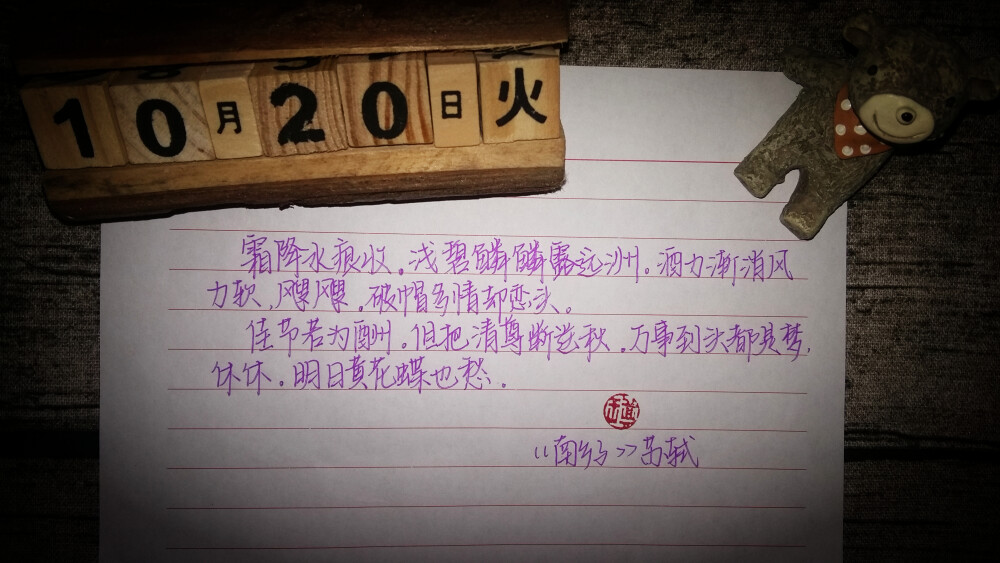 10月20日火
霜降水痕收。浅碧鳞鳞露远洲。酒力渐消风
力软,飕飕。破帽多情却恋头。
佳节若为酬。但把清尊断送秋。万事到头都是梦,
休休。明日黄花蝶也愁。
《南乡》苏轼